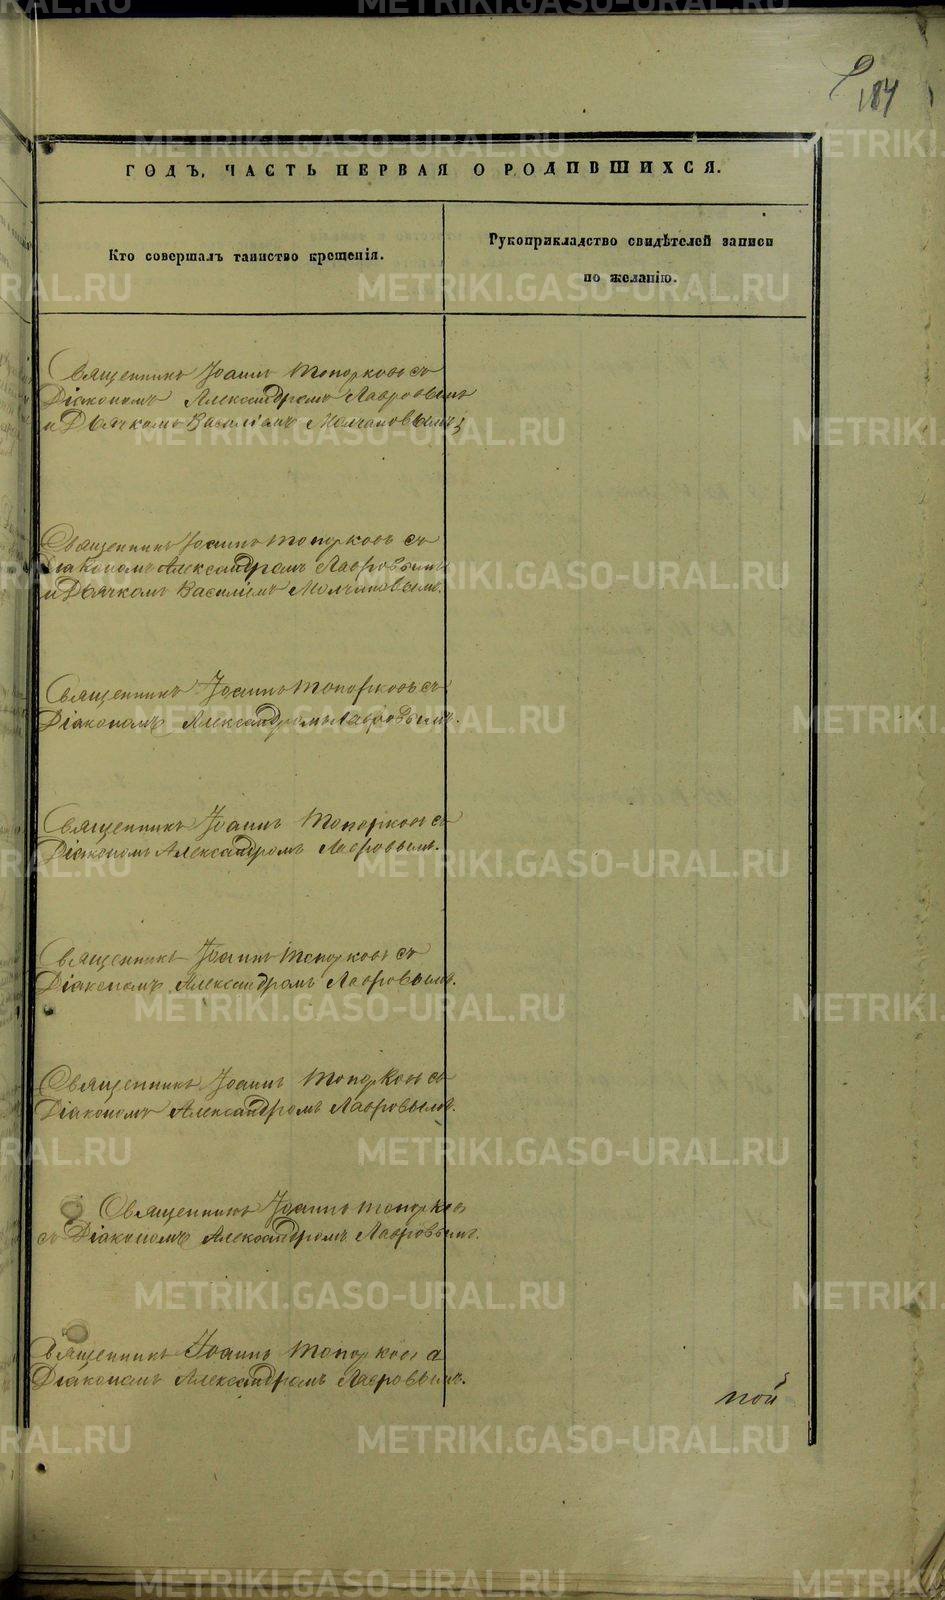 184
ГОДЪ, ЧАСТЬ ПЕРВАЯ О РОДИВШИХСЯ.
Кто совершалъ таинство крещенія.
Рукоприкладство свидѣтелей записи
по желанію.
Священникъ Іоаннъ Топорковъ съ
Діакономъ Александромъ Лавровымъ
и Дьячкомъ Василіемъ Молчановымъ;
Священникъ Іоаннъ Топорковъ съ
Діакономъ Александромъ Лавровымъ
и Дьячкомъ Василіемъ Молчановымъ.
Священникъ Іоаннъ Топорковъ съ
Діакономъ Александромъ Лавровымъ.
Священникъ Іоаннъ Топорковъ съ
Діакономъ Александромъ Лавровымъ.
Священникъ Іоаннъ Топорковъ съ
Діакономъ Александромъ Лавровымъ.
Священникъ Іоаннъ Топорковъ съ
Діакономъ Александромъ Лавровымъ.
Священникъ Іоаннъ Топорковъ
съ Діакономъ Александромъ Лавровымъ.
Священникъ Іоаннъ Топорковъ с
Діакономъ Александромъ Лавровымъ.
пой
METRIKI.GASO-URAL.RU